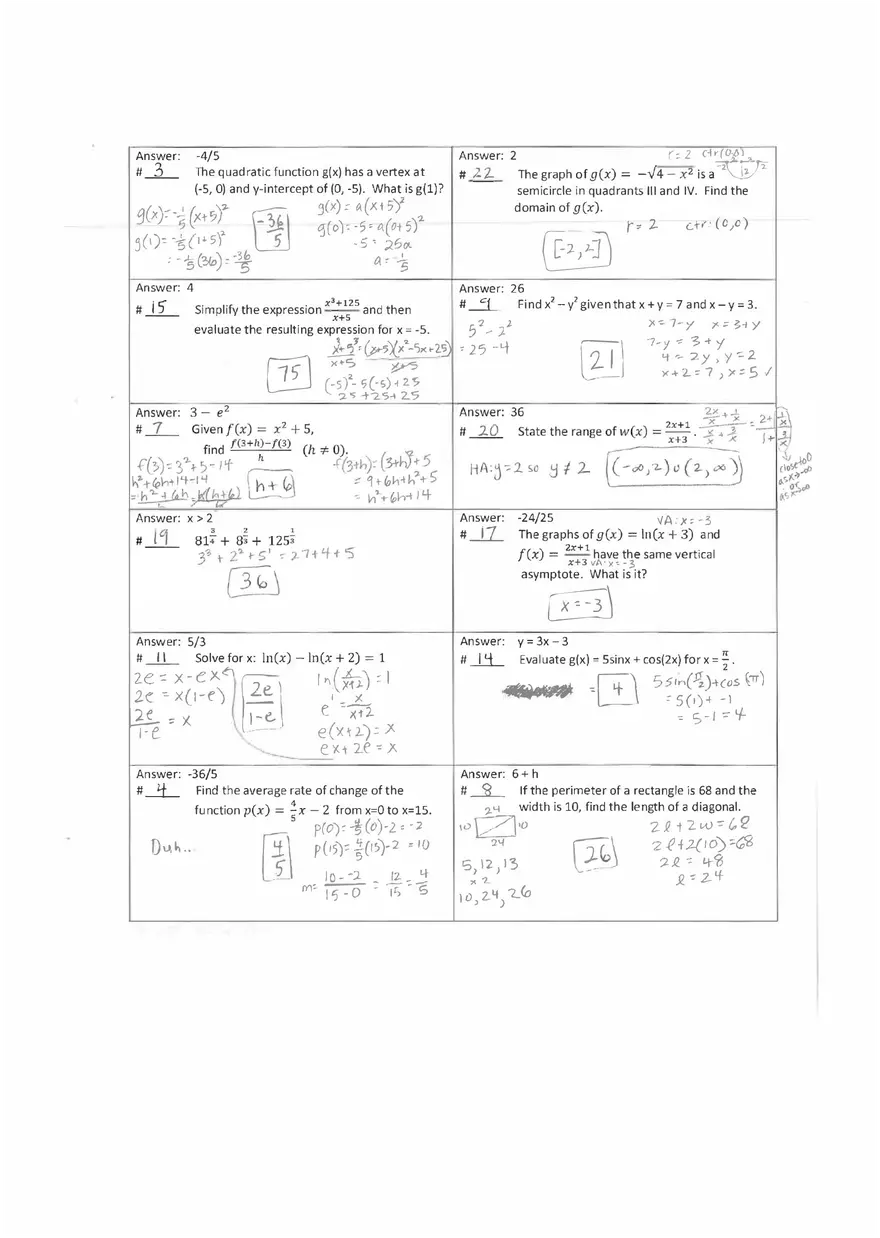 Answer: -4/5
# 3 The quadratic function g(x) has a vertex at
(-5, 0) and y-intercept of (0, -5). What is g(1)?
g(x) = -1/5 (x+5)²
g(1) = -1/5 (1+5)²
= -1/5 (36) = -36/5
-36/5
g(x) = a(x+5)²
g(0) = -5 = a(0+5)²
-5 = 25a
a = -1/5
Answer: 2
r = 2 ctr (0,0)
# 22 The graph of g(x) = −√(4 − x²) is a
semicircle in quadrants III and IV. Find the
domain of g(x).
r = 2 ctr: (0,0)
[-2, 2]
Answer: 4
# 15 Simplify the expression (x³+125)/(x+5) and then
evaluate the resulting expression for x = -5.
(x³+5³)/(x+5) = (x+5)(x²-5x+25)/(x+5)
75
(-5)² - 5(-5) + 25
25 + 25 + 25
Answer: 26
# 9 Find x² – y² given that x + y = 7 and x – y = 3.
5² - 2²
= 25 - 4
21
x = 7-y x = 3+y
7-y = 3+y
4 = 2y, y = 2
x+2 = 7, x = 5 ✓
Answer: 3 − e²
# 7 Given f(x) = x² + 5,
find (f(3+h)−f(3))/h (h ≠ 0).
f(3) = 3²+5 = 14
h²+6h+14-14
= h²+6h = h(h+6)
h + 6
f(3+h) = (3+h)²+5
= 9+6h+h²+5
= h²+6h+14
Answer: 36
# 20 State the range of w(x) = (2x+1)/(x+3).
HA: y = 2 so y ≠ 2
(-∞, 2) ∪ (2, ∞)
close to 0
as x→-∞
or
as x→∞
Answer: x > 2
# 19 81^(3/4) + 8^(2/3) + 125^(1/3)
3³ + 2² + 5¹ = 27+4+5
36
Answer: -24/25
VA: x = -3
# 17 The graphs of g(x) = ln(x + 3) and
f(x) = (2x+1)/(x+3) have the same vertical
VA: x = -3
asymptote. What is it?
x = -3
Answer: 5/3
# 11 Solve for x: ln(x) − ln(x + 2) = 1
2e = x - ex
2e = x(1-e)
2e/(1-e) = x
2e/(1-e)
ln(x/(x+2)) = 1
e¹ = x/(x+2)
e(x+2) = x
ex + 2e = x
Answer: y = 3x – 3
# 14 Evaluate g(x) = 5sinx + cos(2x) for x = π/2.
= 4
5 sin(π/2) + cos(π)
= 5(1) + -1
= 5-1 = 4
Answer: -36/5
# 4 Find the average rate of change of the
function p(x) = 4/5 x − 2 from x=0 to x=15.
Duh...
4/5
p(0) = 4/5 (0) - 2 = -2
p(15) = 4/5 (15) - 2 = 10
m = (10 - -2)/(15 - 0) = 12/15 = 4/5
Answer: 6 + h
# 8 If the perimeter of a rectangle is 68 and the
width is 10, find the length of a diagonal.
24
10 10
24
5, 12, 13
x 2
10, 24, 26
26
2l + 2w = 68
2l + 2(10) = 68
2l = 48
l = 24